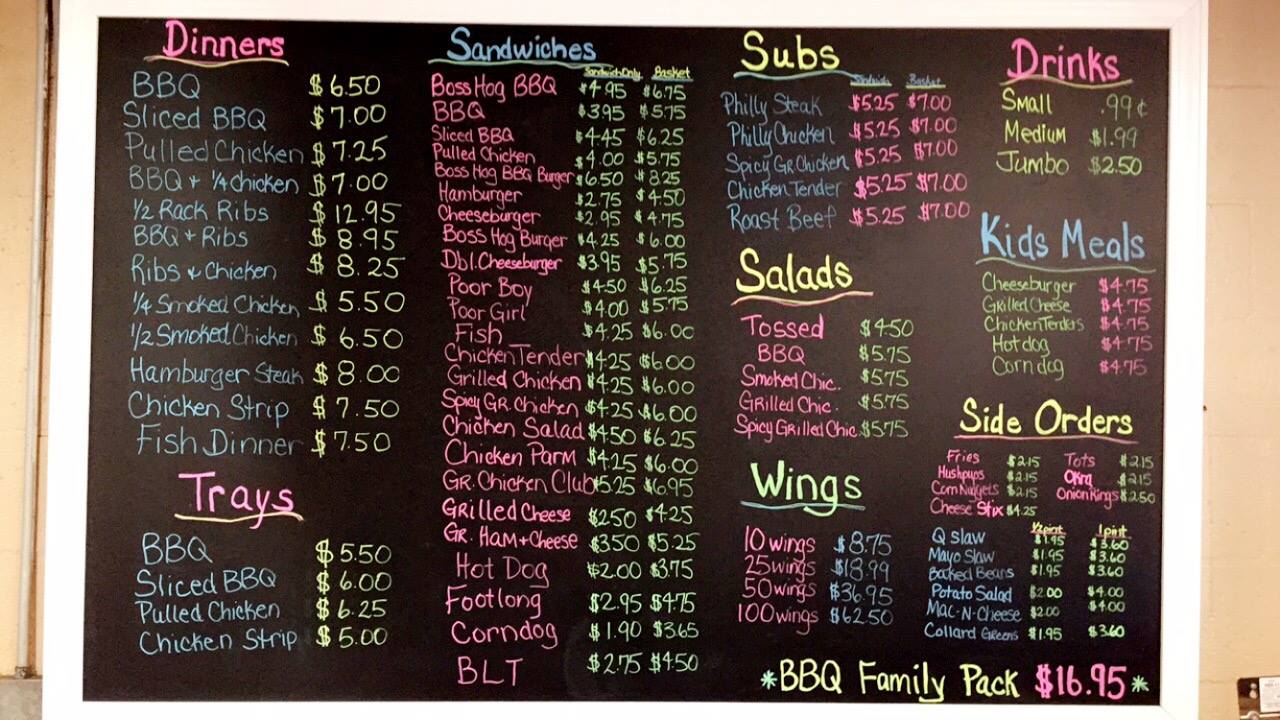 Dinners
BBQ $6.50
Sliced BBQ $7.00
Pulled Chicken $7.25
BBQ + 1/4 Chicken $7.00
1/2 Rack Ribs $12.95
BBQ + Ribs $8.95
Ribs + Chicken $8.25
1/4 Smoked Chicken $5.50
1/2 Smoked Chicken $6.50
Hamburger Steak $8.00
Chicken Strip $7.50
Fish Dinner $7.50
Trays
BBQ $5.50
Sliced BBQ $6.00
Pulled Chicken $6.25
Chicken Strip $5.00
Sandwiches
Sandwich Only Basket
Boss Hog BBQ $4.95 $6.75
BBQ $3.95 $5.75
Sliced BBQ $4.45 $6.25
Pulled Chicken $4.00 $5.75
Boss Hog BBQ Burger $6.50 $8.25
Hamburger $2.75 $4.50
Cheeseburger $2.95 $4.75
Boss Hog Burger $4.25 $6.00
Dbl. Cheeseburger $3.95 $5.75
Poor Boy $4.50 $6.25
Poor Girl $4.00 $5.75
Fish $4.25 $6.00
Chicken Tender $4.25 $6.00
Grilled Chicken $4.25 $6.00
Spicy GR. Chicken $4.25 $6.00
Chicken Salad $4.50 $6.25
Chicken Parm $4.25 $6.00
GR. Chicken Club $5.25 $6.95
Grilled Cheese $2.50 $4.25
GR. Ham + Cheese $3.50 $5.25
Hot Dog $2.00 $3.75
Footlong $2.95 $4.75
Corndog $1.90 $3.65
BLT $2.75 $4.50
Subs
Sandwich Basket
Philly Steak $5.25 $7.00
Philly Chicken $5.25 $7.00
Spicy Gr. Chicken $5.25 $7.00
Chicken Tender $5.25 $7.00
Roast Beef $5.25 $7.00
Salads
Tossed $4.50
BBQ $5.75
Smoked Chic. $5.75
Grilled Chic. $5.75
Spicy Grilled Chic. $5.75
Wings
10 wings $8.75
25 wings $18.99
50 wings $36.95
100 wings $62.50
Drinks
Small .99¢
Medium $1.99
Jumbo $2.50
Kids Meals
Cheeseburger $4.75
Grilled Cheese $4.75
Chicken Tenders $4.75
Hot dog $4.75
Corn dog $4.75
Side Orders
Fries $2.15 Tots $2.15
Hushpups $2.15 Okra $2.15
Corn Nuggets $2.15 Onion Rings $2.50
Cheese Stix $4.25
1/2 pint 1 pint
Q slaw $1.95 $3.60
Mayo Slaw $1.95 $3.60
Baked Beans $1.95 $3.60
Potato Salad $2.00 $4.00
Mac-N-Cheese $2.00 $4.00
Collard Greens $1.95 $3.60
*BBQ Family Pack $16.95*